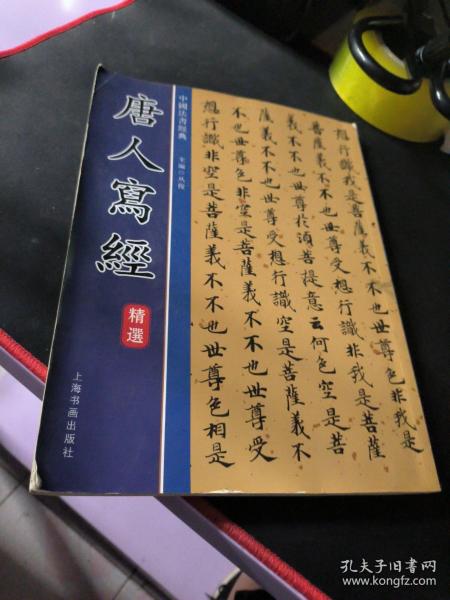 中國法書經典
主編
唐人寫經
精選
上海书画出版社
想行識我是菩薩義不不也世尊色非我是
菩薩義不不也世尊受想行識非我是菩薩
義不不也世尊於湏菩提意云何色空是菩
薩義不不也世尊受想行識空是菩薩義不
不也世尊色非空是菩薩義不不也世尊受
想行識非空是菩薩義不不也世尊色相是
孔夫子旧书网
www.kongfz.com